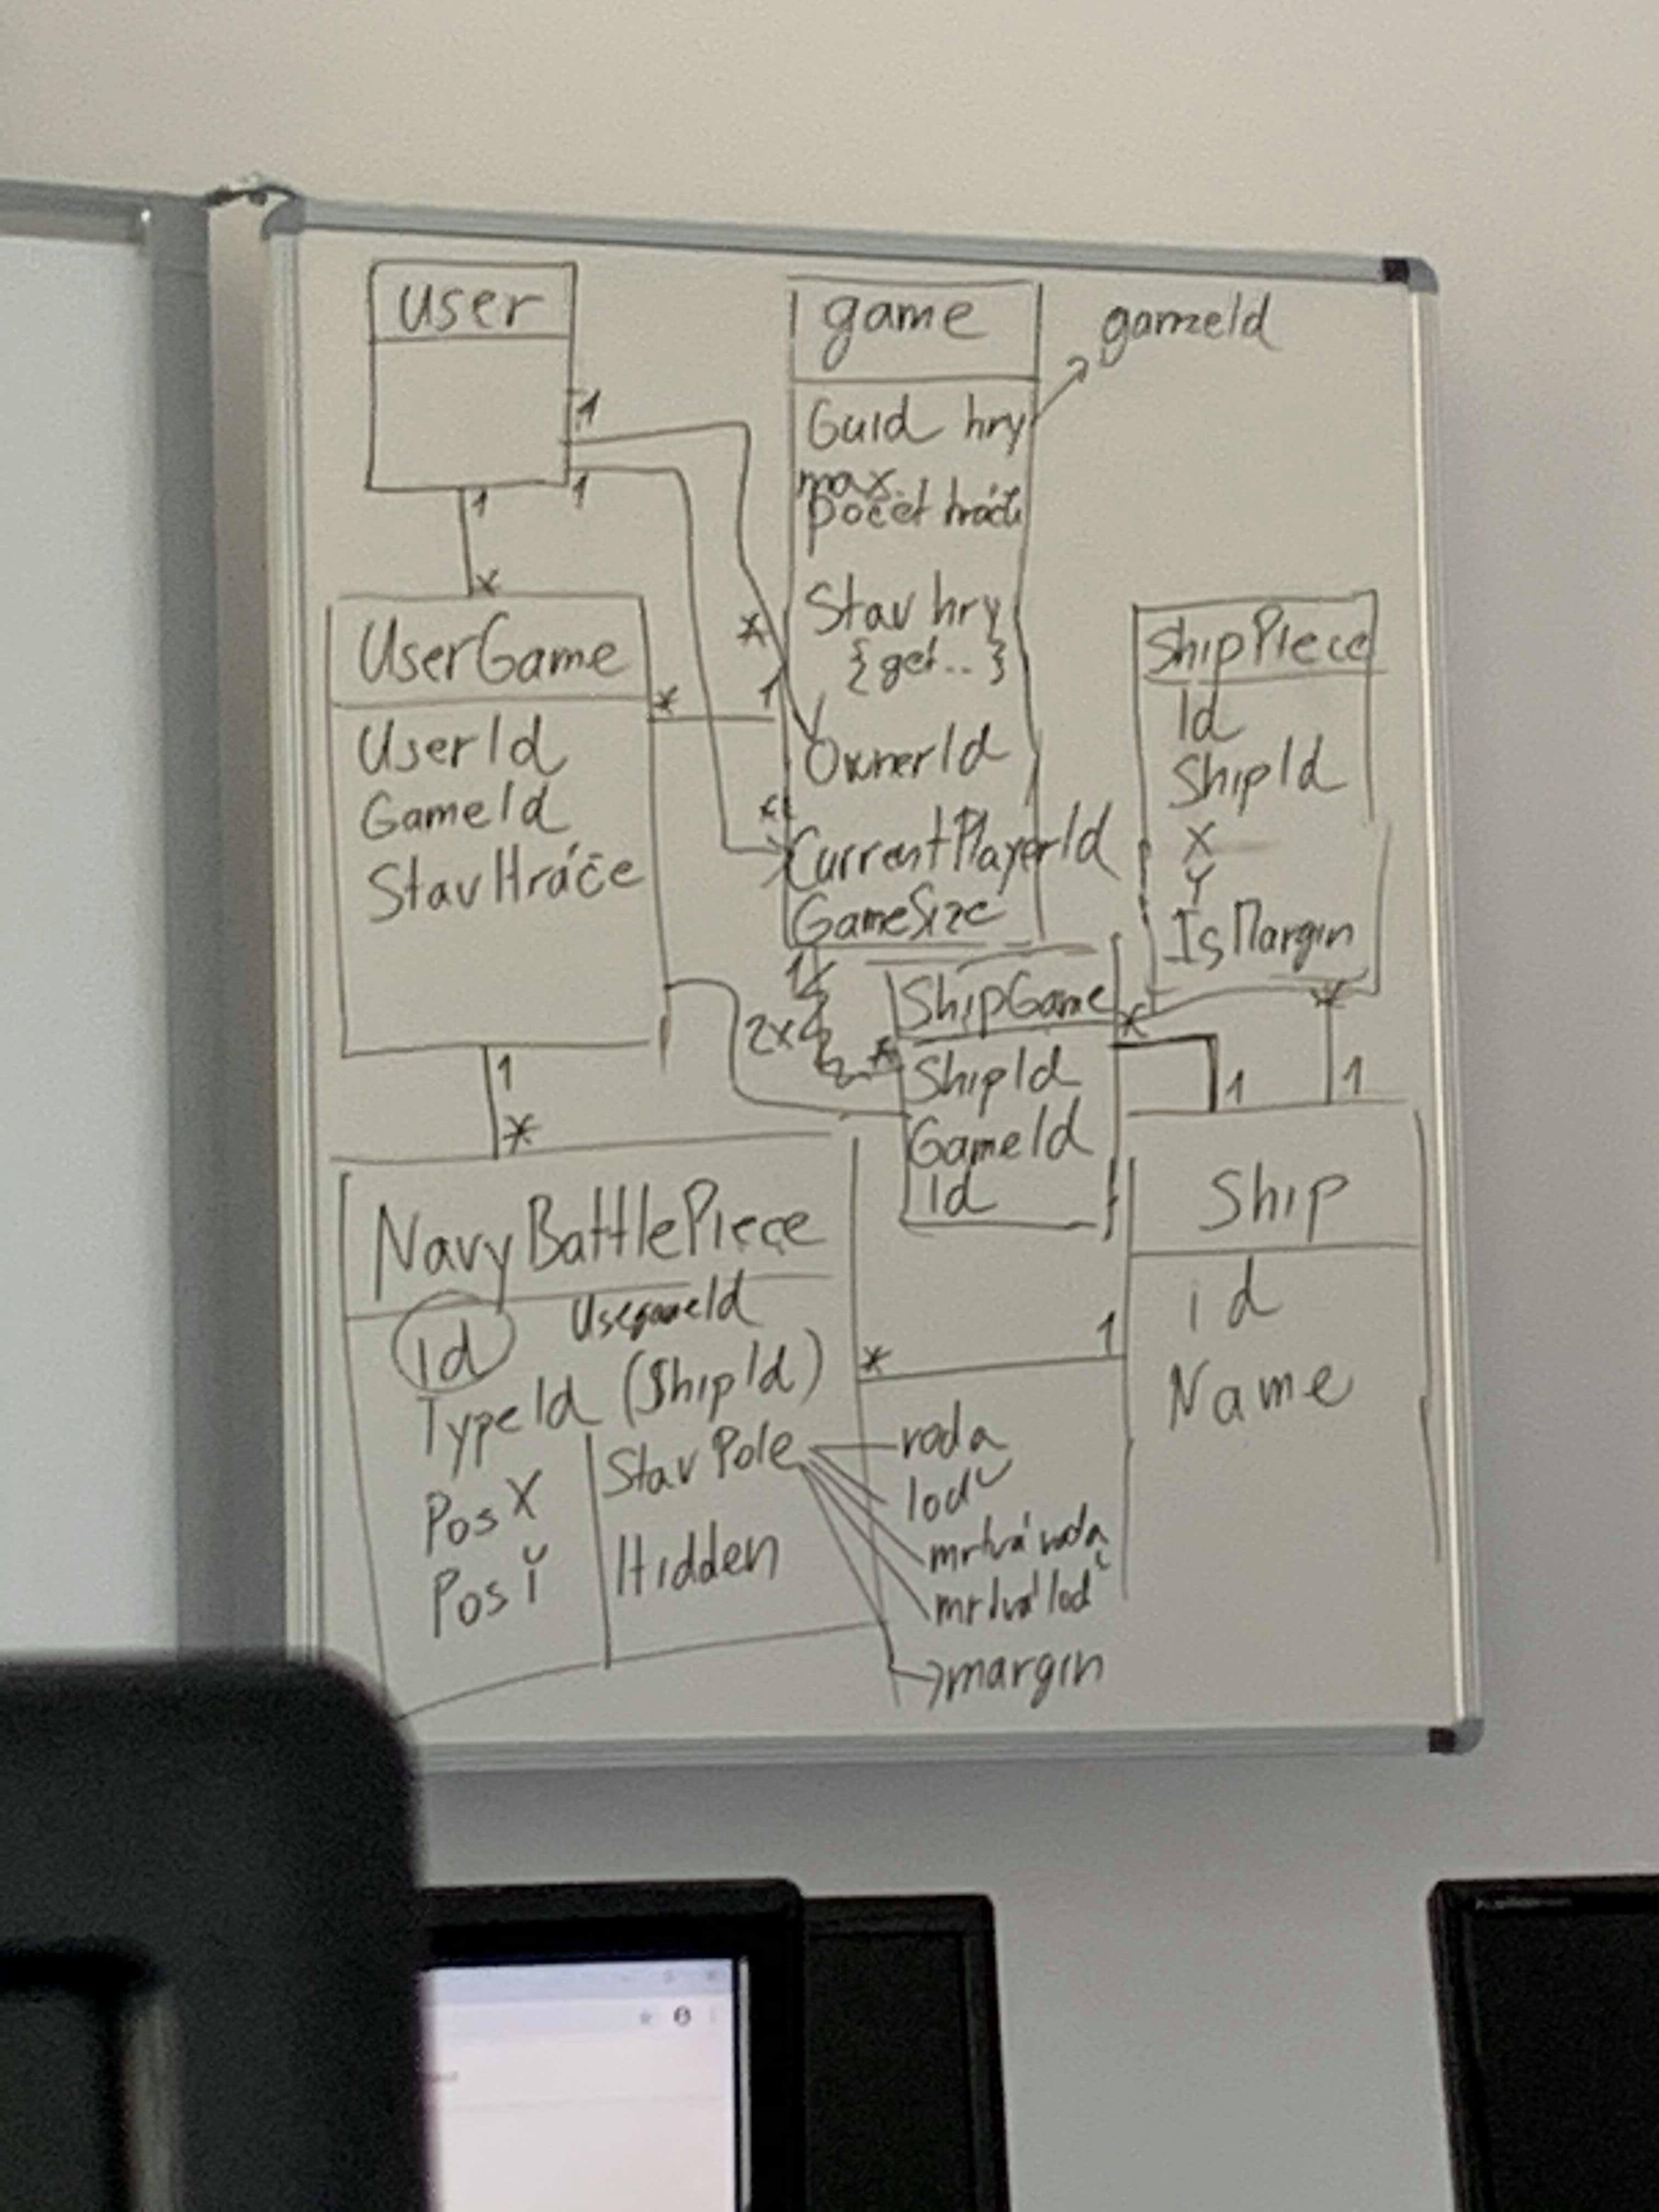 user
1
1
1
*
game
gameId
Guid hry
max.
počet hráčů
Stav hry
{get..}
OwnerId
CurrentPlayerId
GameSize
*
1
*
UserGame
UserId
GameId
StavHráče
*
1
*
ShipPiece
Id
ShipId
X
Y
IsMargin
*
1
1
2x
*
ShipGame
ShipId
GameId
id
*
1
Ship
id
Name
NavyBattlePiece
Id
UsegameId
TypeId (ShipId)
PosX
PosY
StavPole
Hidden
*
1
voda
loď
mrtvá voda
mrtvá loď
margin